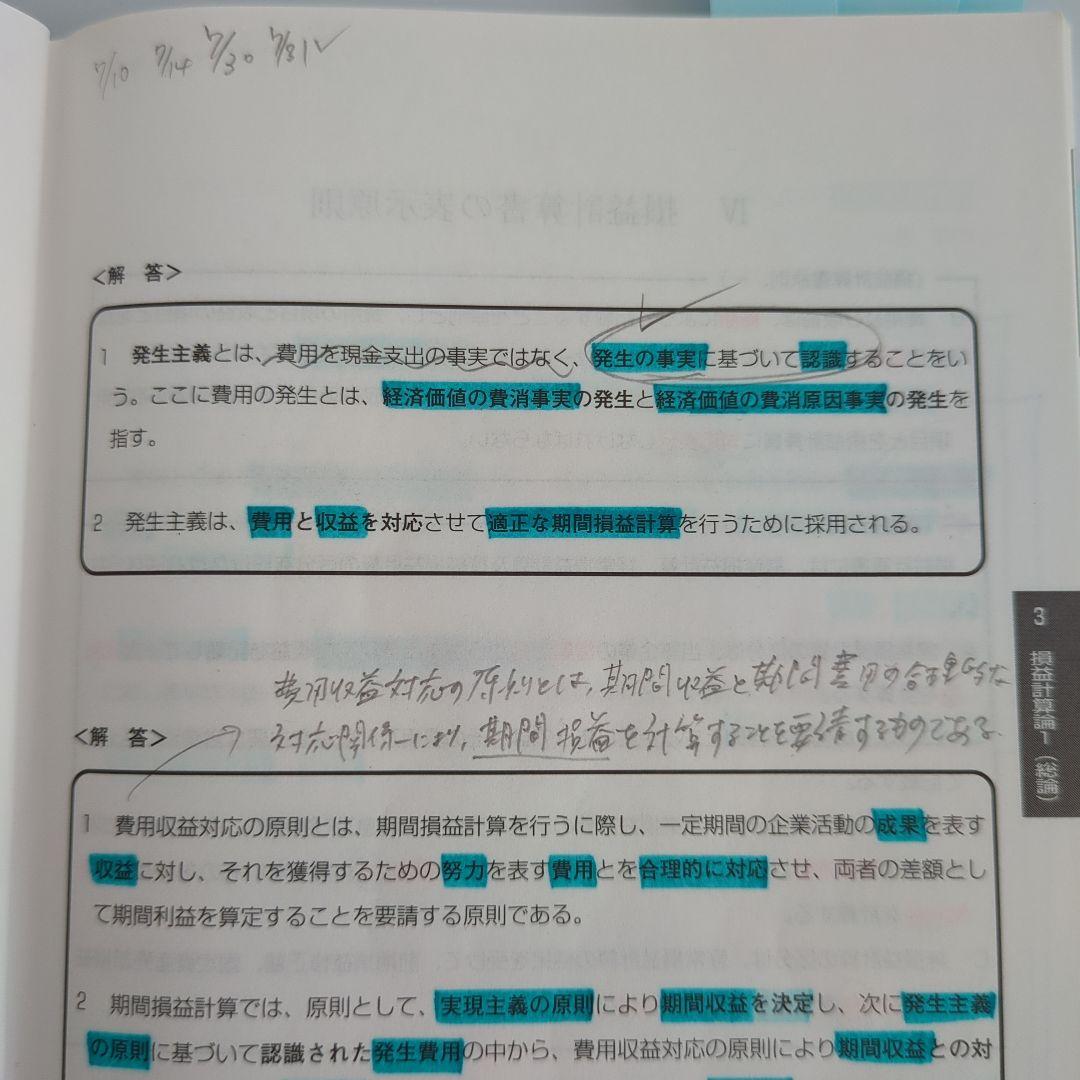 7/10 7/14 7/30 7/31
Ⅳ 損益計算書の表示原則
<解 答>
1 発生主義とは、費用を現金支出の事実ではなく、発生の事実に基づいて認識することをい
う。ここに費用の発生とは、経済価値の費消事実の発生と経済価値の費消原因事実の発生を
指す。
2 発生主義は、費用と収益を対応させて適正な期間損益計算を行うために採用される。
費用収益対応の原則とは、期間収益と期間費用の合理的な
対応関係により、期間損益を計算することを要請するものである。
<解 答>
1 費用収益対応の原則とは、期間損益計算を行うに際し、一定期間の企業活動の成果を表す
収益に対し、それを獲得するための努力を表す費用とを合理的に対応させ、両者の差額とし
て期間利益を算定することを要請する原則である。
2 期間損益計算では、原則として、実現主義の原則により期間収益を決定し、次に発生主義
の原則に基づいて認識された発生費用の中から、費用収益対応の原則により期間収益との対
3
損益計算論1(総論)